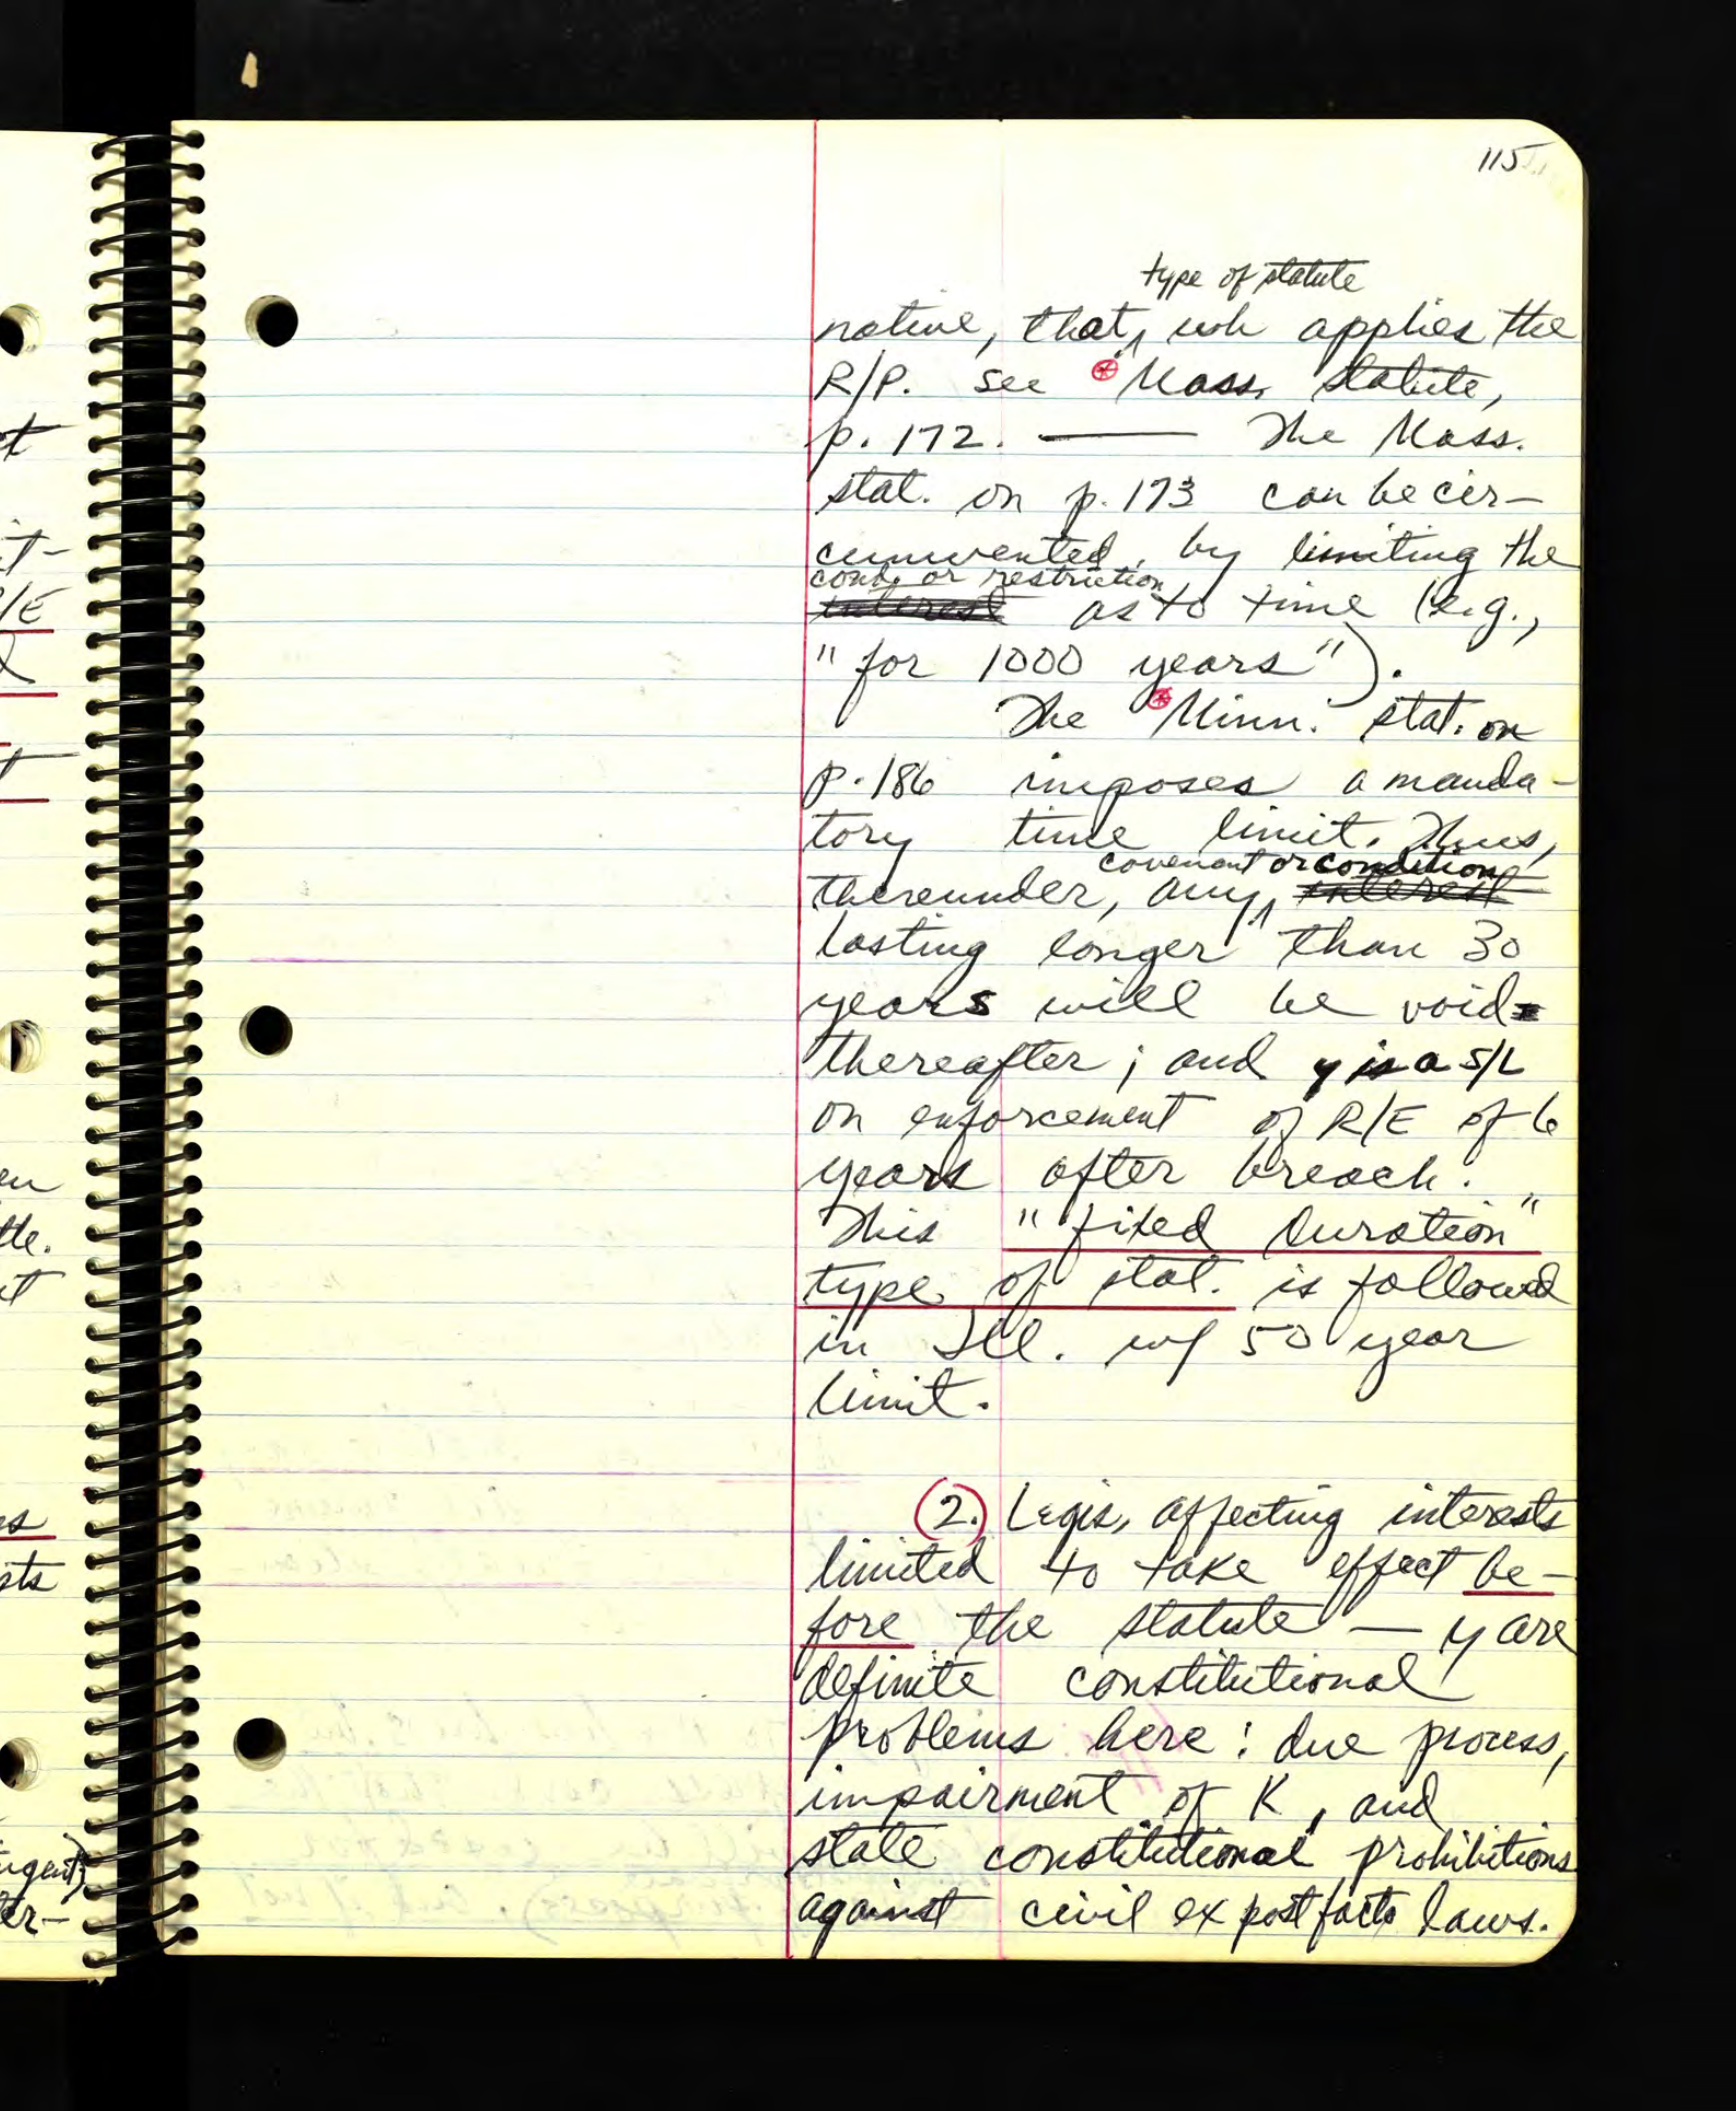 115
type of statute
native, that, wh applies the
R/P. see Mass. statute,
p. 172. — The Mass.
stat. on p. 173 can be cir-
cumvented, by limiting the
cond. or restriction
interest as to time (e.g.,
"for 1000 years").
The Minn. stat. on
p. 186 imposes a manda-
tory time limit. Thus,
covenant or condition
thereunder, any interest
lasting longer than 30
years will be void
thereafter; and y is a S/L
on enforcement of R/E of 6
years after breach.
This "fixed duration"
type of stat. is followed
in Ill. w/ 50 year
limit.
(2.) Legis. affecting interests
limited to take effect be-
fore the statute — y are
definite constitutional
problems here: due process,
impairment of K, and
state constitutional prohibitions
against civil ex post facto laws.